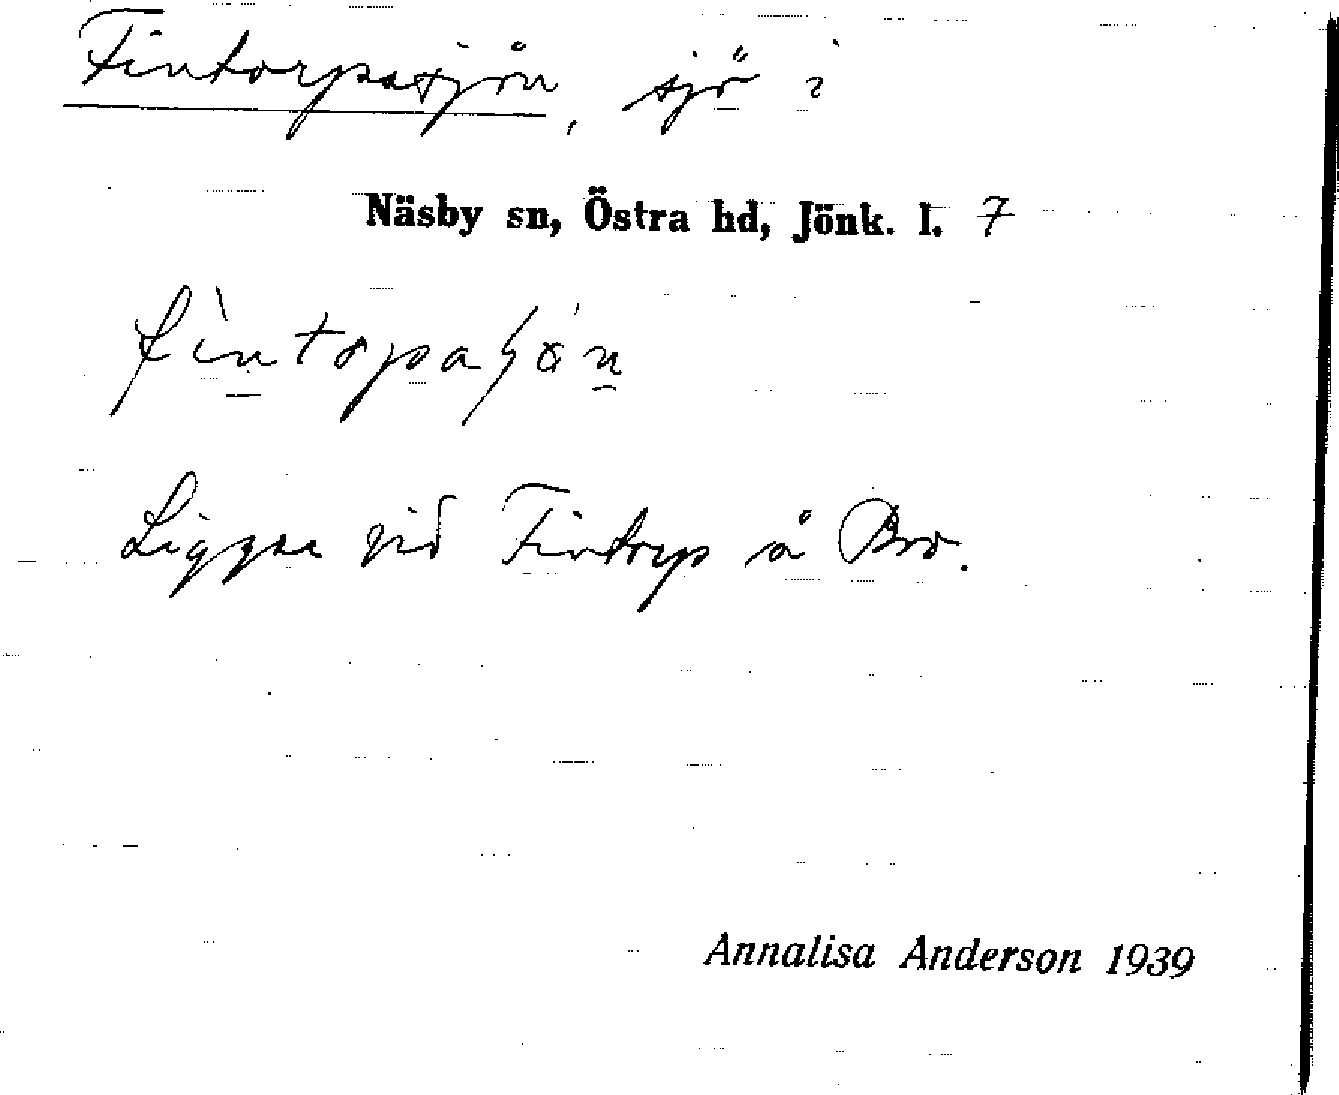 Fintorpasjön, sjö i
Näsby sn, Östra hd, Jönk. l. 7
Ligger vid Fintorp å Bro.
Annalisa Anderson 1939